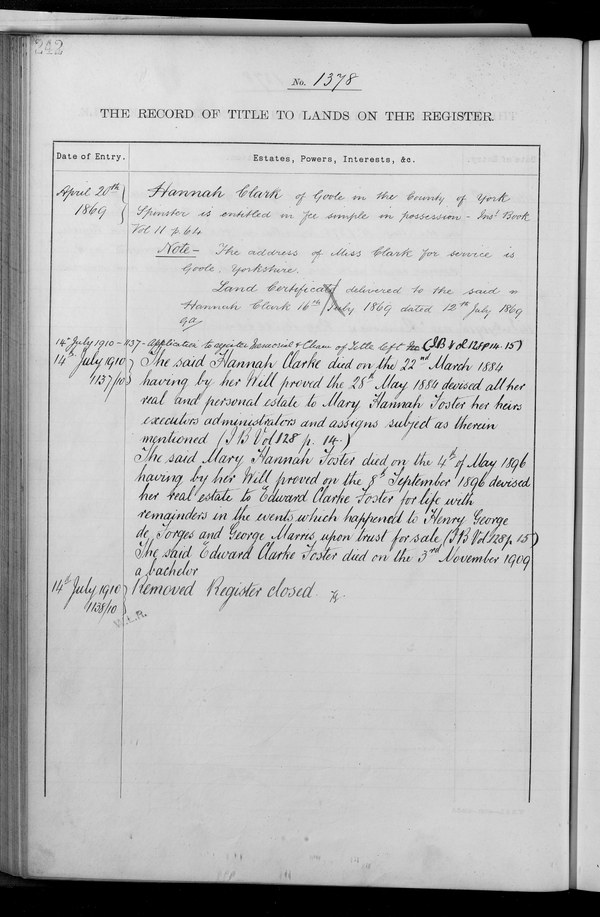 242
No. 1378
THE RECORD OF TITLE TO LANDS ON THE REGISTER.
Date of Entry. Estates, Powers, Interests, &c.
April 20th Hannah Clark of Goole in the County of York
1869 Spinster is entitled in fee simple in possession - Inst Book
Vol 11 p 64
Note - The address of Miss Clark for service is
Goole, Yorkshire.
Land Certificate delivered to the said
Hannah Clark 16th July 1869 dated 12th July 1869
14th July 1910 - 1137 - Application to register Memorial & Chain of Title left (I B Vol 128 p 14. 15)
14th July 1910 The said Hannah Clarke died on the 22nd March 1884
1137/10 having by her Will proved the 28th May 1884 devised all her
real and personal estate to Mary Hannah Foster her heirs
executors administrators and assigns subject as therein
mentioned (I B Vol 128 p. 14.)
The said Mary Hannah Foster died on the 4th of May 1896
having by her Will proved on the 8th September 1896 devised
her real estate to Edward Clarke Foster for life with
remainders in the events which happened to Henry George
de Torges and George Marris upon trust for sale (I B Vol 128 p. 15)
The said Edward Clarke Foster died on the 3rd November 1909
a bachelor
14th July 1910 Removed Register closed.
1138/10
W.L.R.